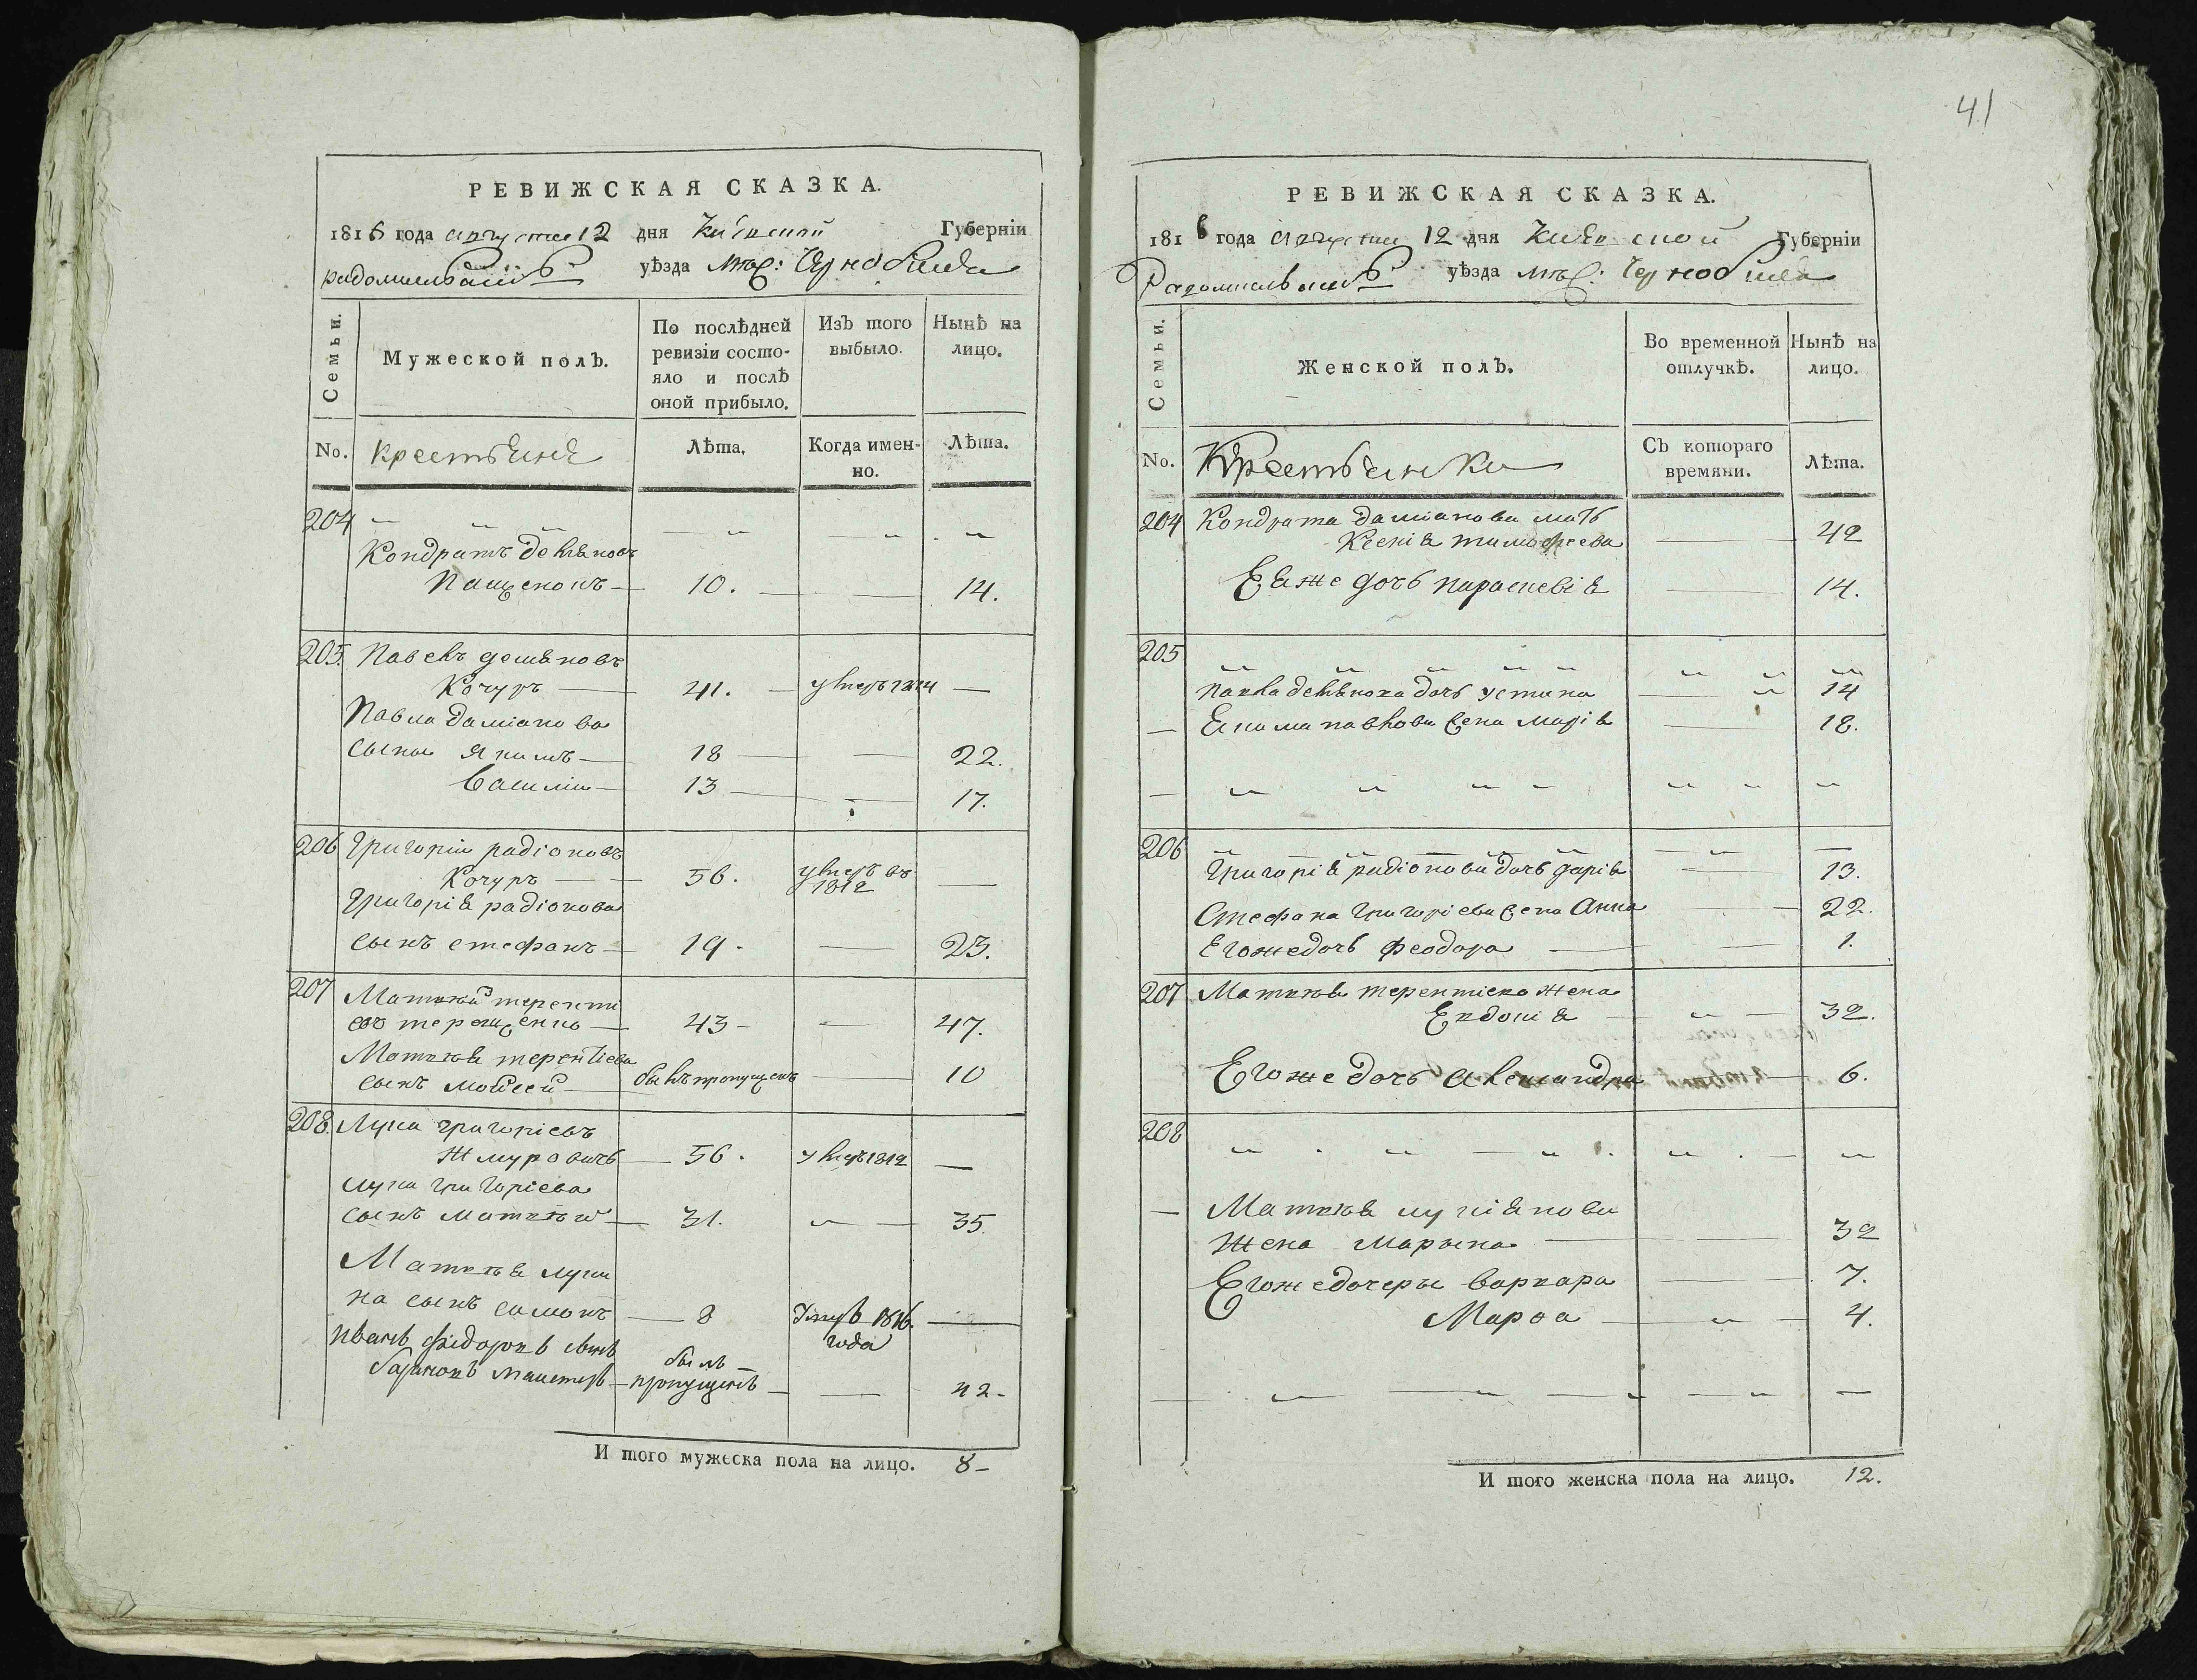 41
РЕВИЖСКАЯ СКАЗКА.
1816 года августа 12 дня Киевской Губерніи
радомысльской уѣзда мѣс: Чернобиля
Семьи.
Мужеской полЪ.
По послѣдней ревизіи состояло и послѣ оной прибыло.
ИзЪ того выбыло.
НынѢ на лицо.
No.
крестьяне
ЛѢта.
Когда именно.
ЛѢта.
204
Кондратъ демяновъ
Пащенокъ 10. 14.
205. Павелъ демяновъ
Кочуръ 41. умеръ 1814
Павла Даміанова
сыны Якимъ 18 22.
Василии 13 17.
206 Григории радіоновъ
Кочуръ 56. умеръ въ 1812
Григорія радіонова
сынъ стефанъ 19. 23.
207 Маткѣй терентиевъ терещенко 43 47.
Маткѣя терентіева
сынъ Мойсей былъ пропущенъ 10
208. Лука григоріевъ
Жмуровичъ 56. умеръ 1812
луки григоріева
сынъ маткѣй 31. 35.
Маткѣя луки
на сынъ симонъ 8 умеръ 1816. года
Иванъ фіодоровъ сынъ
былъ пропущенъ 42
И того мужеска пола на лицо. 8
РЕВИЖСКАЯ СКАЗКА.
1816 года августа 12 дня Киевской Губерніи
Радомысльской уѣзда мѣс: Чернобиля
Семьи.
Женской полЪ.
Во временной отлучкѢ.
НынѢ на лицо.
No.
Крестьянки
СЪ котораго времяни.
ЛѢта.
204 Кондрата Даміанова мать
Ксенія тимофеева 42
Еяже дочь параскевія 14.
205
павла демянова дочь устина 14
Якима павлова жена Марія 18.
206
Григорія радіонова дочь дарія 13.
Стефана Григоріева жена Анна 22.
Егоже дочь феодора 1.
207 Маткѣя терентіева жена
Евдокія 32.
Егоже дочь Александра 6.
208
Маткѣя лукіянова
жена Марына 32
Егоже дочеры варвара 7.
Марѳа 4.
И того женска пола на лицо. 12.